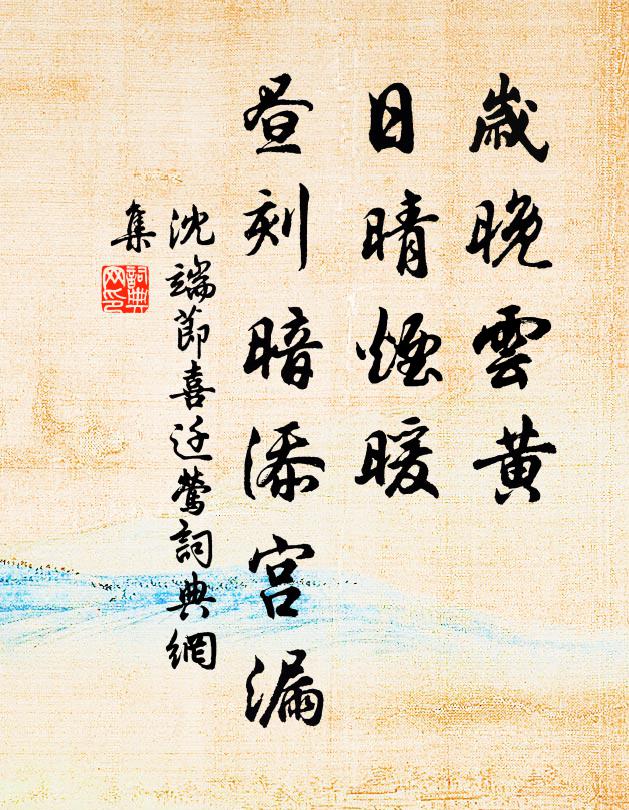 歲晚雲黃
日晴煙暖
晝刻暗添宮漏
沈端節喜迁鶯詞典網
集
詞典
网印